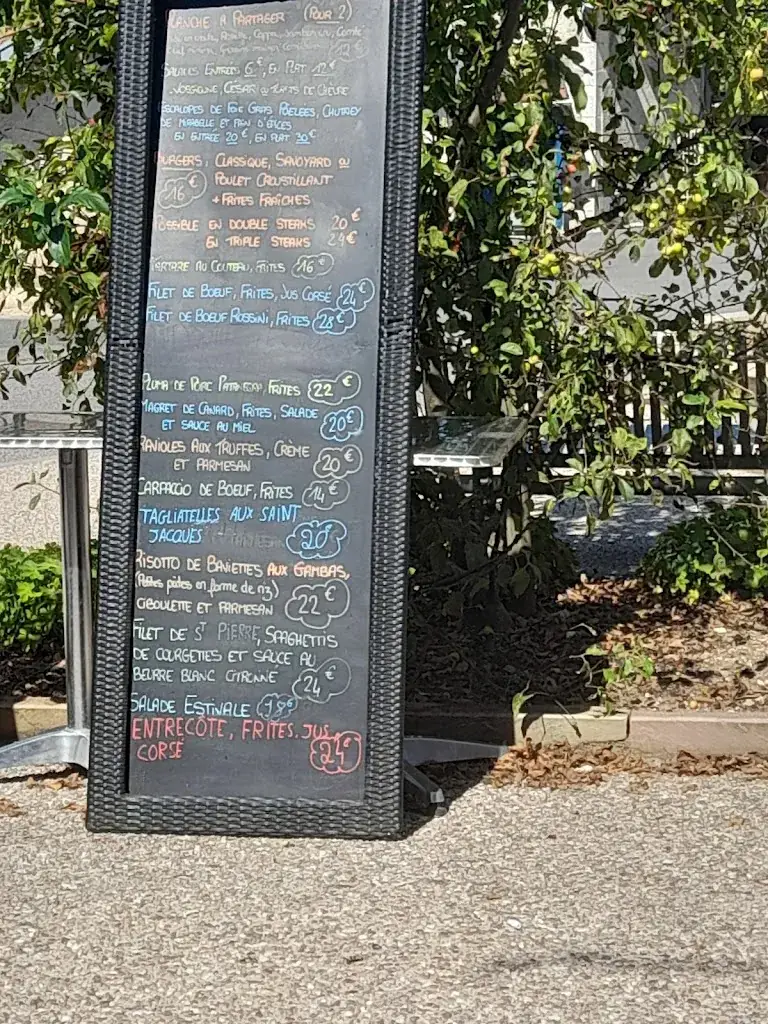 PLANCHE A PARTAGER (POUR 2)
12€
SALADES ENTRÉES 6€, EN PLAT 12€
VOSGIENNE, CÉSAR DE CHÈVRE
ESCALOPES DE FOIE GRAS POÊLÉES, CHUTNEY
DE MIRABELLE ET PAIN D'ÉPICES
EN ENTRÉE 20€, EN PLAT 30€
BURGERS: CLASSIQUE, SAVOYARD OU
16€ POULET CROUSTILLANT
+ FRITES FRAÎCHES
POSSIBLE EN DOUBLE STEAKS 20€
EN TRIPLE STEAKS 24€
TARTARE AU COUTEAU, FRITES 16€
FILET DE BOEUF, FRITES, JUS CORSÉ 24€
FILET DE BOEUF ROSSINI, FRITES 28€
PLUMA DE PORC PATA NEGRA, FRITES 22€
MAGRET DE CANARD, FRITES, SALADE
ET SAUCE AU MIEL 20€
RAVIOLES AUX TRUFFES, CRÈME
ET PARMESAN 20€
CARPACCIO DE BOEUF, FRITES 14€
TAGLIATELLES AUX SAINT
JACQUES 20€
RISOTTO DE AUX GAMBAS,
(Petites pâtes en forme de riz)
CIBOULETTE ET PARMESAN 22€
FILET DE ST PIERRE, SPAGHETTIS
DE COURGETTES ET SAUCE AU
BEURRE BLANC CITRONNÉ 24€
SALADE ESTIVALE
ENTRECÔTE, FRITES, JUS
CORSÉ 24€